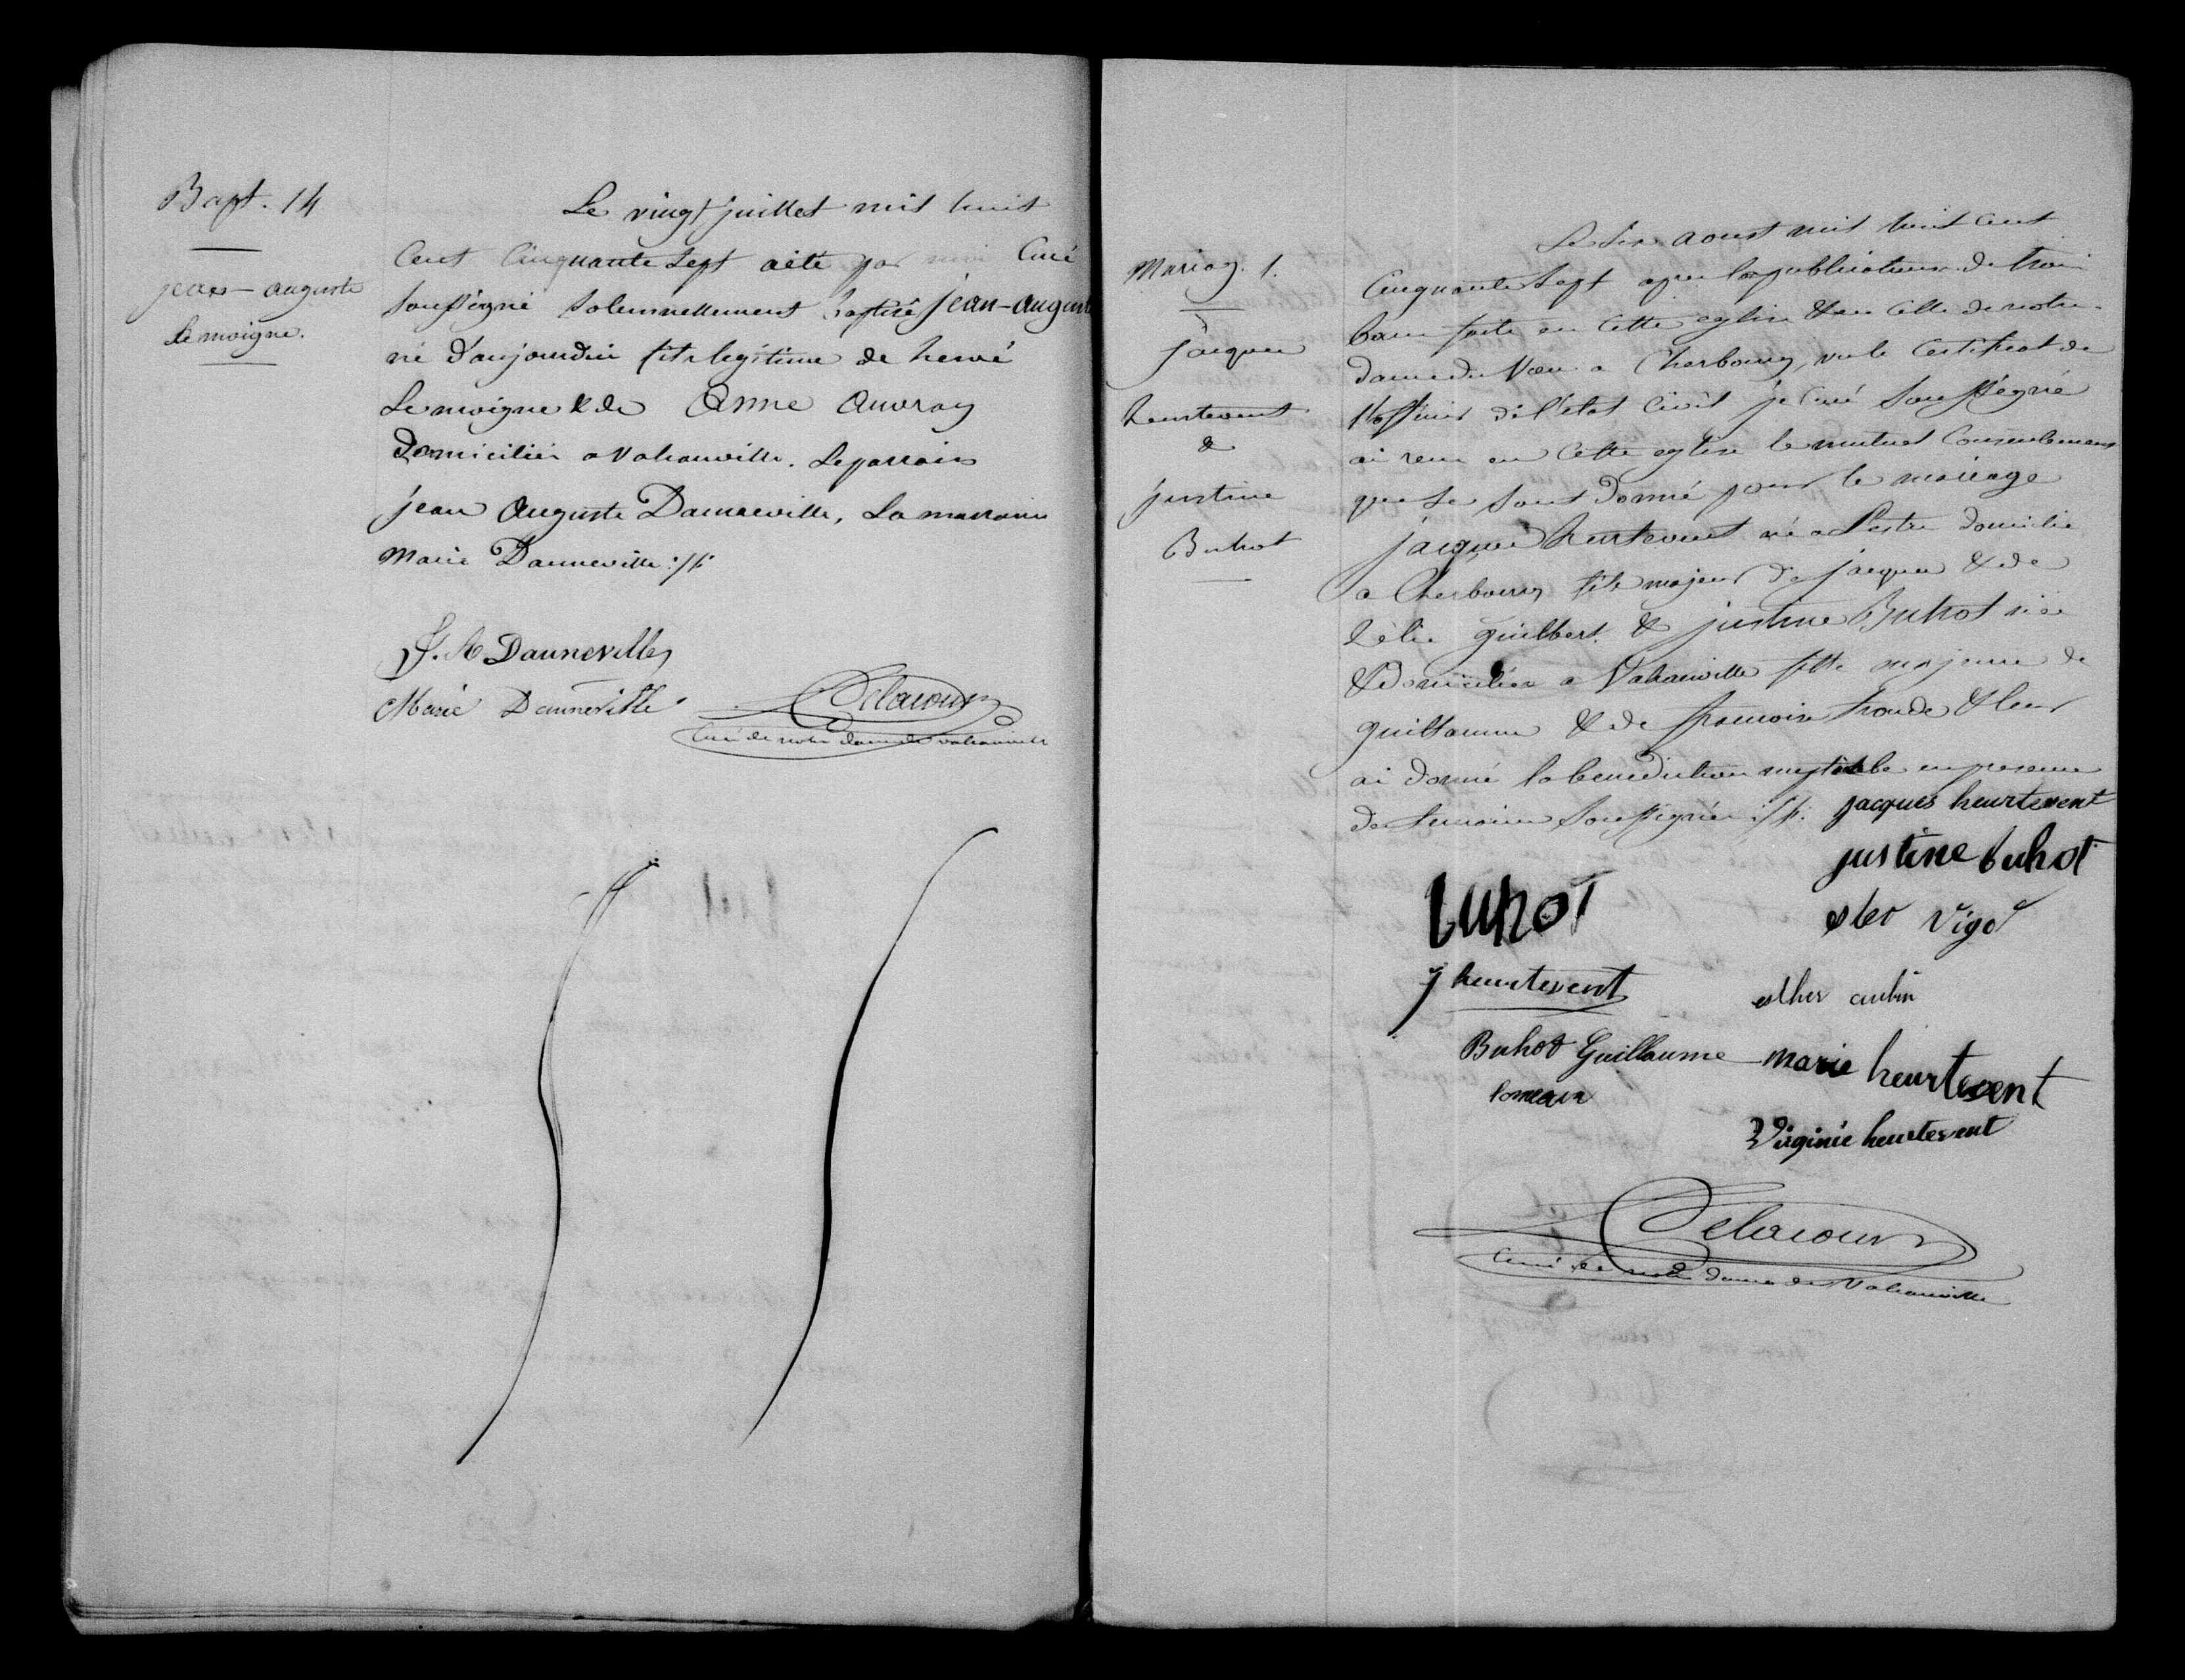 Bapt. 14
jean-auguste
Lemoigne.
Le vingt juillet mil huit
Cent Cinquante Sept aété par moi Curé
Soussigné Solennellement baptisé jean-auguste
né d'aujourdui fils legitime de hervé
Lemoigne & de Anne Auvray
Domiciliés a Valcanville. Leparrain
jean Auguste Danneville, La marraine
Marie Danneville
J. A Danneville
Marie Danneville
Delacour
Curé de notre dame de valcanville
Mariag. 1.
jacques
heurtevent
&
justine
Buhot
Le aoust mil huit cent
Cinquante Sept apres la publication de trois
bans faite en Cette eglise & en Celle de notre
dame du Voeu a Cherbourg, vu le Certificat de
l'officier de l'état Civil je Curé Soussigné
ai reçu en Cette eglise le mutuel Consentement
que se sont Donné pour le mariage
jacques heurtevent né a Lestre domicilié
a Cherbourg fils majeur de jacques & de
guilbert & justine Buhot née
& Domiciliée a Valcanville fille majeure de
guillaume & de francoise troude & leur
ai donné la benediction nuptiale en presence
des temoins Soussignés
jacques heurtevent
justine buhot
buhot
ester Vigo
J heurtevent
esther aubin
Buhot Guillaume
marie heurtevent
Virginie heurtevent
Delacour
Curé de notre dame de Valcanville